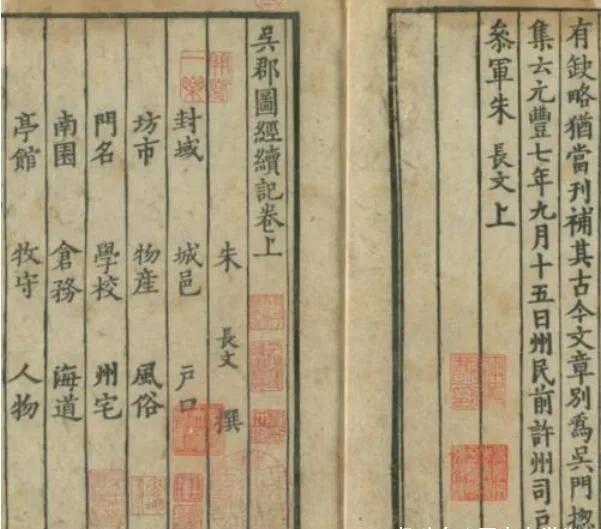 有缺略猶當刊補其古今文章別爲吳門揔
集云元豐七年九月十五日州民前許州司戶
叅軍朱長文上
吳郡圖經續記卷上
朱長文撰
封域 城邑 戶口
坊市 物産 風俗
門名 學校 州宅
南園 倉務 海道
亭館 牧守 人物